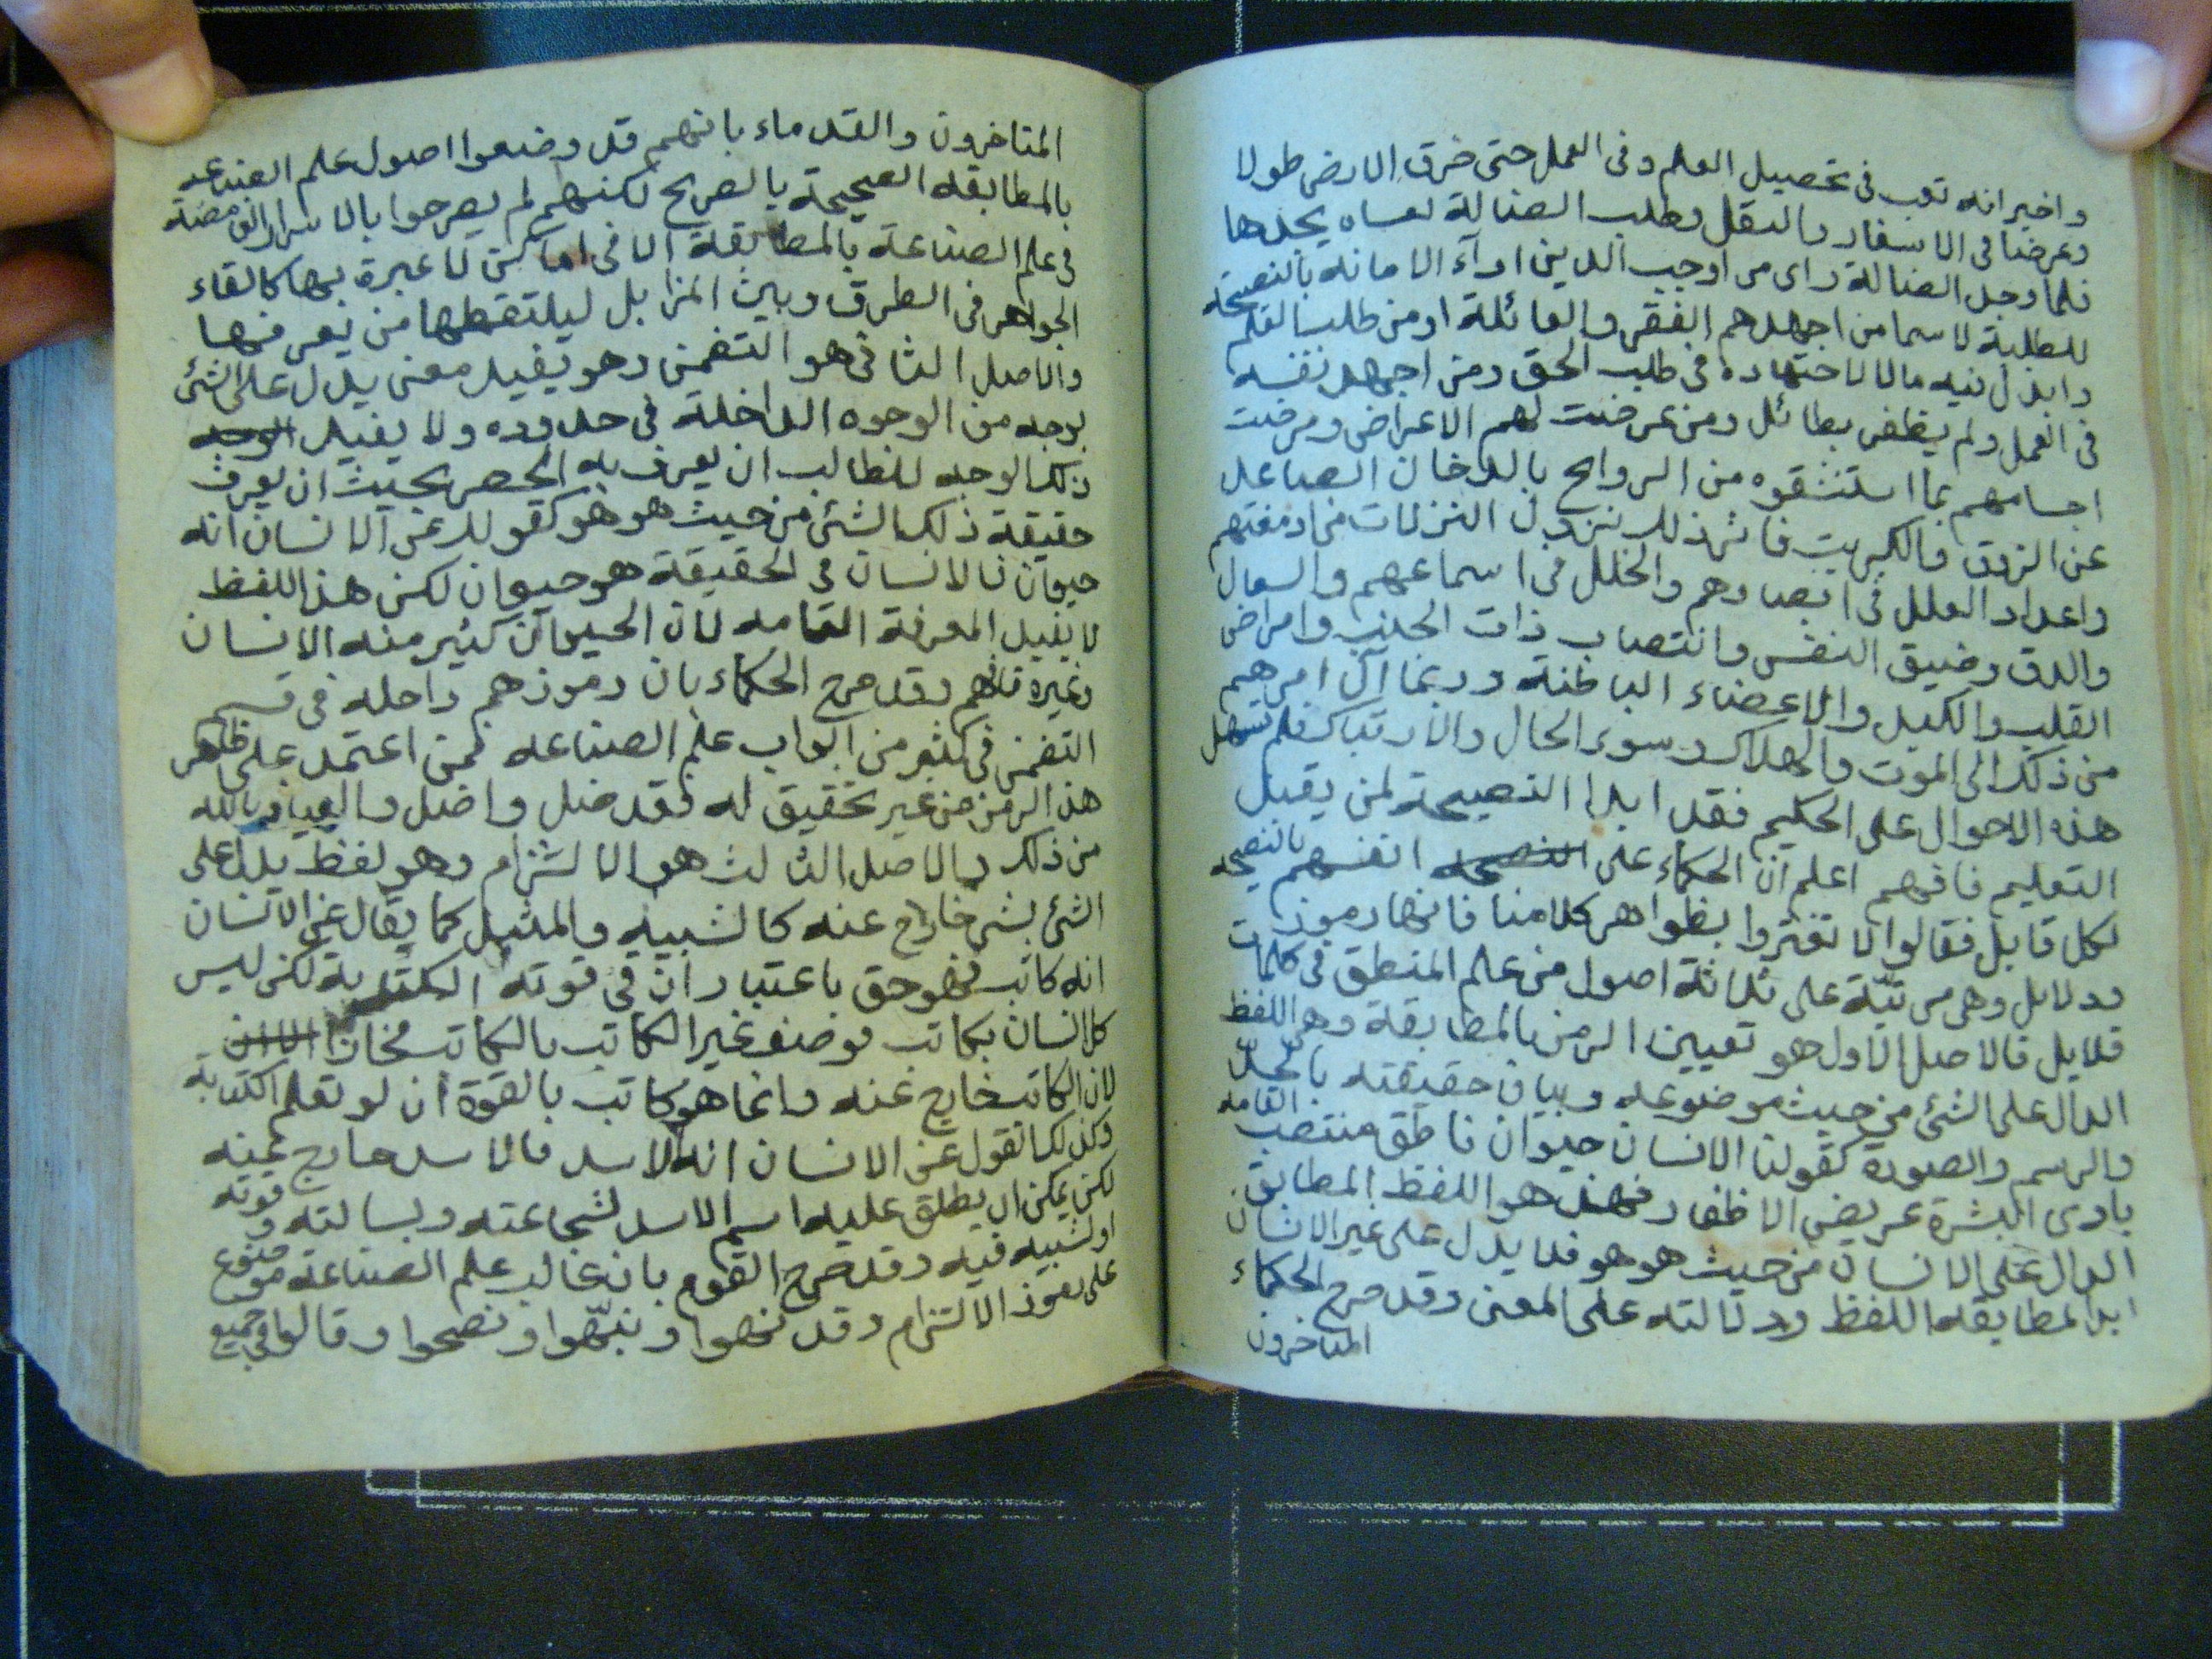 واخبر انه تعب فى تحصيل العلم وفى العمل حتى خرق الارض طولا
وعرضا فى الاسفار بالنقل وطلب الضالة لعساه يجدها
فلما وجد الضالة راى من اوجب الدين اداء الامانه بالنصيحة
للطلبة لاسما من اجهدهم الفقر والعائلة او من طلب العلم
وابذل فيه مالا لاجتهاده فى طلب الحق ومن اجهد نفسه
فى العمل ولم يظفر بطائل ومن عرضت لهم الاعراض ومرضت
اجسامهم بما استنشقوه من الروايح بالدخان الصاعد
عن الزوق والكبريت فاثر ذلك نزول النزلات من ادمغتهم
واعداد العلل فى ابصارهم والخلل فى اسماعهم والسعال
والدق وضيق النفس وانتصاب ذات الجنب وامراض
القلب والكبد والاعضاء الباطنة وربما آل امرهم
من ذلك الى الموت والهلاك وسوء الحال والارتباك فلم تسهل
هذه الاحوال على الحكيم فقد ابدا النصيحة لمن يقبل
التعليم فافهم اعلم ان الحكماء على النصيحه انفسهم بالنصيحة
لكل قابل فقالوا لا تغتروا بظواهر كلامنا فانها رموز
ودلايل وهى مرتبّة على ثلاثة اصول من علم المنطق فى كلمات
قلايل فالاصل الاول هو تعيين الرمز بالمطابقة وهى اللفظ
الدال على الشئ من حيث موضوعه وبيان حقيقته بالحدّ
والرسم والصورة كقولنا الانسان حيوان ناطق منتصب القامه
بادى البشرة عريض الاظفار فهذا هو اللفظ المطابق
الدال على الانسان من حيث هو هو فلا يدل على غير الانسان
ابدا لمطابقه اللفظ ودلالته على المعنى وقد صرح الحكماء
المتاخرون
المتاخرون والقدماء بانهم قد وضعوا اصول علم الصناعه
بالمطابقه الصحيحة بالصريح لكنهم لم يصرحوا بالاسرار الغامضة
فى علم الصناعة بالمطابقة الا فى اماكن لا عبرة بها كالقاء
الجواهر فى الطرق وبين المزابل ليلتقطها من يعرفها
والاصل الثانى هو التضمن وهو يفيد معنى يدل على الشئ
بوجه من الوجوه الداخلة فى حدوده ولا يفيد الوجه
ذلك الوجه للطالب ان يعرف به الحصر بحيث ان يعرف
حقيقة ذلك الشئ من حيث هو هو كقولك عن الانسان انه
حيوان فالانسان فى الحقيقة هو حيوان لكن هذا اللفظ
لا يفيد المعرفة التامه لان الحيوان كثير منه الانسان
وغيره فافهم وقد صرح الحكماء بان رموزهم داخله فى قسم
التضمن فى كثير من ابواب علم الصناعه فمن اعتمد على ظاهر
هذا الرمز من غير تحقيق له فقد ضل واضل والعياذ بالله
من ذلك والاصل الثالث هو الالتزام وهو لفظ يدل على
الشئ بشئ خارج عنه كالشبيه والمثيل كما يقال عن الانسان
انه كاتب فهو حق باعتبار ان فى قوته الكتابة لكن ليس
كل انسان بكاتب فوصف غير الكاتب بالكاتب مجازا
لان الكاتب خارج عنه وانما هو كاتب بالقوة ان لو تعلم الكتابة
وكذلك تقول عن الانسان انه الاسد فالاسد خارج عنه
لكن يمكن ان يطلق عليه اسم الاسد لشجاعته وبسالته وقوته
او لشبيه فيه وقد صرح القوم بان غالب علم الصناعة موضوع
على رموز الالتزام وقد نهوا ونبّهوا ونصحوا وقالوا فى جميع